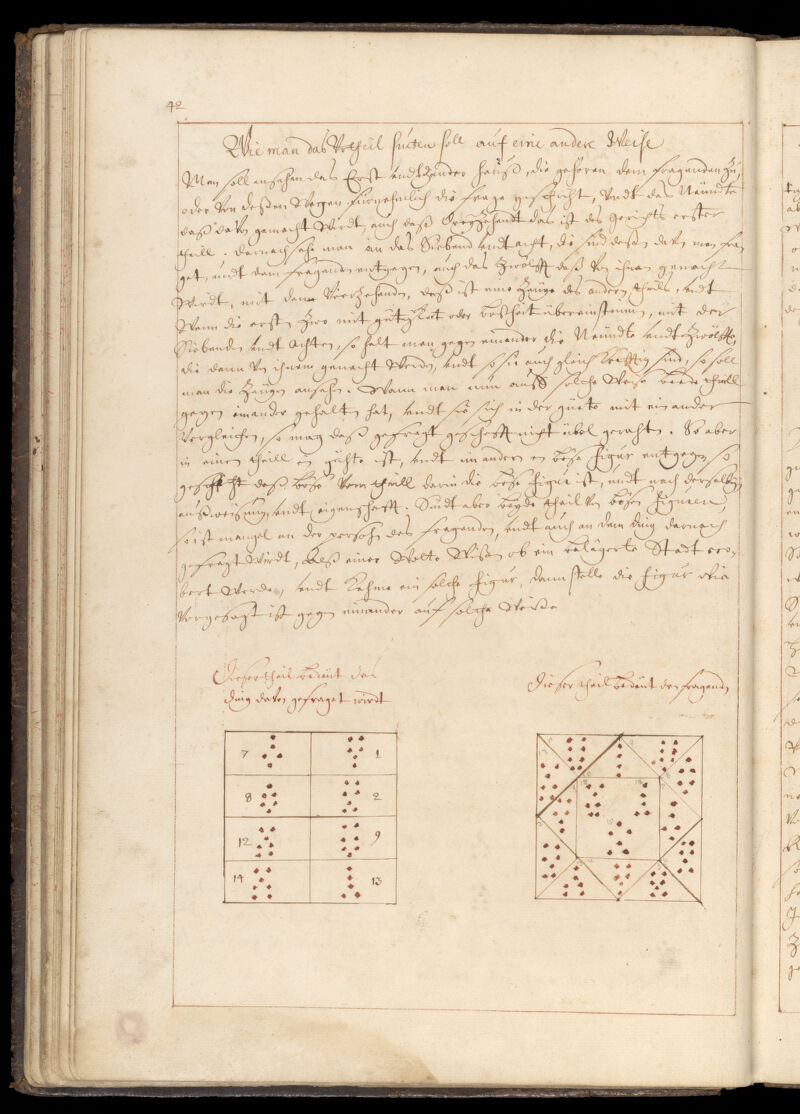 42
Wie man das Urtheil suchen soll auf eine andere Weise
Man soll ansehen das Erst undt Ander Hauß, die gehören dem fragenden zu,
oder von deßen wegen fürnehmlich die frage geschicht, undt das Neündte
daß davon gemacht wirdt, auch daß Dreyzehendt das ist des gerichts erster
theill, darnach sehe man an das Siebend undt acht, die sind deßen davon man fra,
get, undt dem fragenden entgegen, auch das Zwölfft daß von ihnen gemacht
wirdt, mit dem Vierzehenden, deß ist eine Zeüge des andern theils, undt
Wann die ersten Zwo mit gütigkeit oder boßheit übereinstimmen, mit der
Siebenden undt Achten, so halt man gegen einander die Neündte undt Zwölffte,
die dann von ihnen gemacht werden, undt so sie auch gleich kräfftig sind, so soll
man die Zeügen ansehen. Wann man nun auff solche Weise beede theill
gegen einander gehalten hat, undt sie sich in der güete mit ein ander
Vergleichen, so mag daß gefragt geschefft nicht übel gerathen. So aber
in einen theill ein guhte ist, undt im andern ein böße figur entgegen so
geschicht daß böße vom theill darin die böße figur ist, undt nach derselben
außweisung undt eigenschafft. Sindt aber beyde theil von bößen figuren,
so ist mangel an der persohn des fragenden, undt auch an dem ding darnach
gefragt wirdt, Alß einer wolte wißen ob ein belägerte Stadt ero,
bert werde, undt Kehme ein solche figur, dann stelle die figur wie
Vorgesagt ist gegen einander auf solche Weiße
Dieser theil bedeüt das
ding davon gefraget wirdt
Dieser theil bedeüt den fragenden
7 1
8 2
12 9
14 13